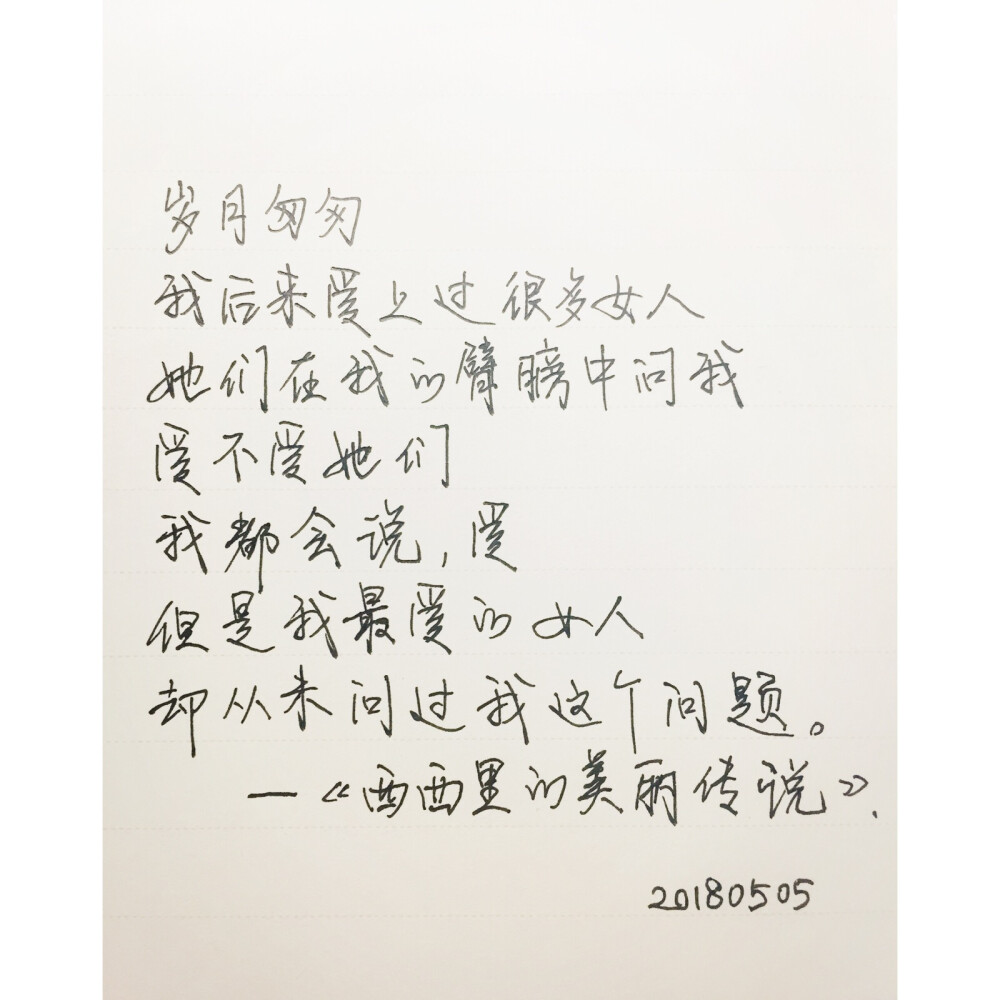 岁月匆匆
我后来爱上过很多女人
她们在我的臂膀中问我
爱不爱她们
我都会说,爱
但是我最爱的女人
却从未问过我这个问题。
—《西西里的美丽传说》.
20180505